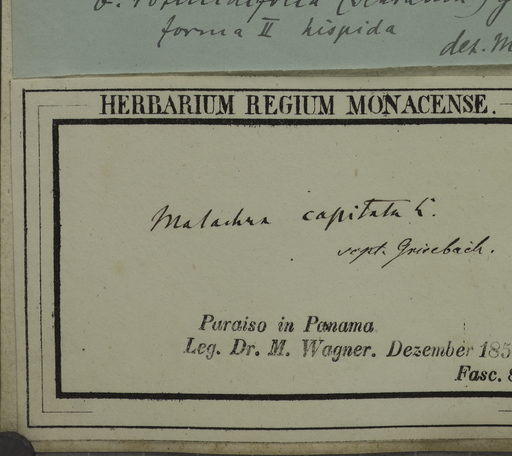 forma II hispida
det. M
HERBARIUM REGIUM MONACENSE.
Malachra capitata L.
sept. Grisebach.
Paraiso in Panama
Leg. Dr. M. Wagner. Dezember 185
Fasc. 8